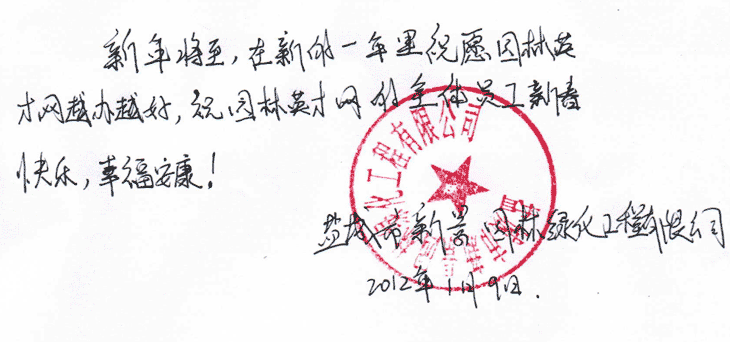 新年将至，在新的一年里祝愿园林英
才网越办越好，祝园林英才网的全体员工新春
快乐，幸福安康！
盐城市新景园林绿化工程有限公司
2012年1月9日.
化工程有限公司